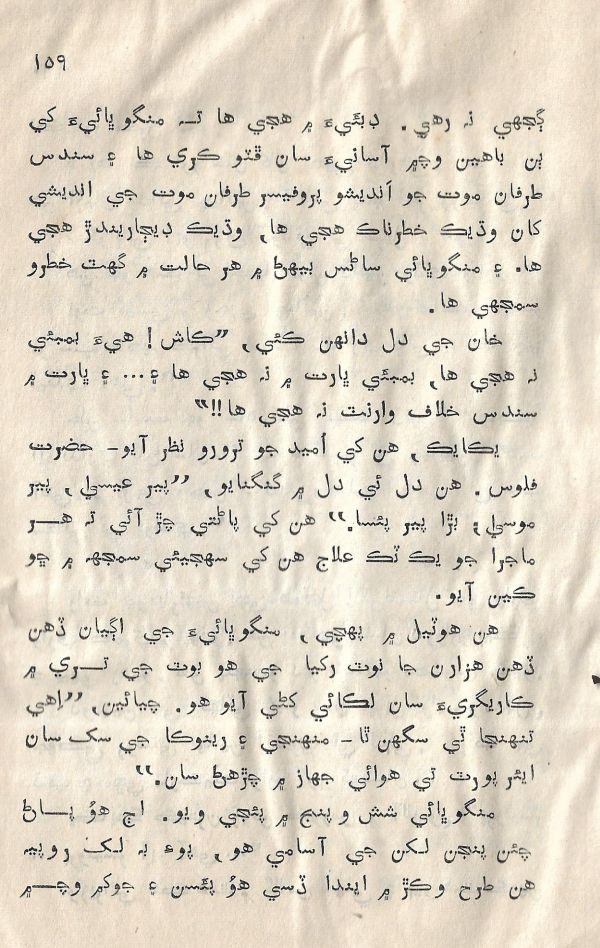 ١٥٩
ڳجهي نہ رهي. دبئيءَ ۾ هجي ها تہ منگو ڀائيءَ کي
ٻن ٻاهين وچ۾ آسانيءَ سان ڦٽو ڪري ها ۽ سندس
طرفان موت جو انديشو پروفيسر طرفان موت جي انديشي
کان وڌيڪ خطرناڪ هجي ها، وڌيڪ ڊيڄاريندڙ هجي
ها. ۽ منگو ڀائي ساڻس بيهڻ ۾ هر حالت ۾ گهٽ خطرو
سمجهي ها.
خان جي دل دانهن ڪئي، ”ڪاش! هيءَ بمبئي
نہ هجي ها، بمبئي ڀارت ۾ نہ هجي ها ۽... ۽ ڀارت ۾
سندس خلاف وارنٽ نہ هجي ها!!“
يڪايڪ، هن کي اُميد جو ترورو نظر آيو- حضرت
فلوس. هن دل ئي دل ۾ گنگنايو، ”پير عيسيٰ، پير
موسيٰ، بڙا پير پئسا.“ هن کي پاڻتي چڙ آئي تہ هر
ماجرا جو يڪ ٽڪ علاج هن کي سهجيئي سمجهہ ۾ ڇو
ڪين آيو.
هن هوٽيل ۾ پهچي، منگو ڀائيءَ جي اڳيان ڏهن
ڏهن هزارن جا نوٽ رکيا جي هو بوٽ جي تري ۾
ڪاريگريءَ سان لڪائي کڻي آيو هو. چيائين، ”اِهي
تنهنجا ٿي سگهن ٿا- منهنجي ۽ رينوڪا جي سک سان
ايئر پورٽ تي هوائي جهاز ۾ چڙهڻ سان.“
منگو ڀائي شش و پنج ۾ پئجي ويو. اڄ هوُ پاڻ
چئن پنجن لکن جي آسامي هو، پوءِ بہ لک روپيہ
هن طرح وڪڙ ۾ ايندا ڏسي هوُ پئسن ۽ جوکم وچ۾